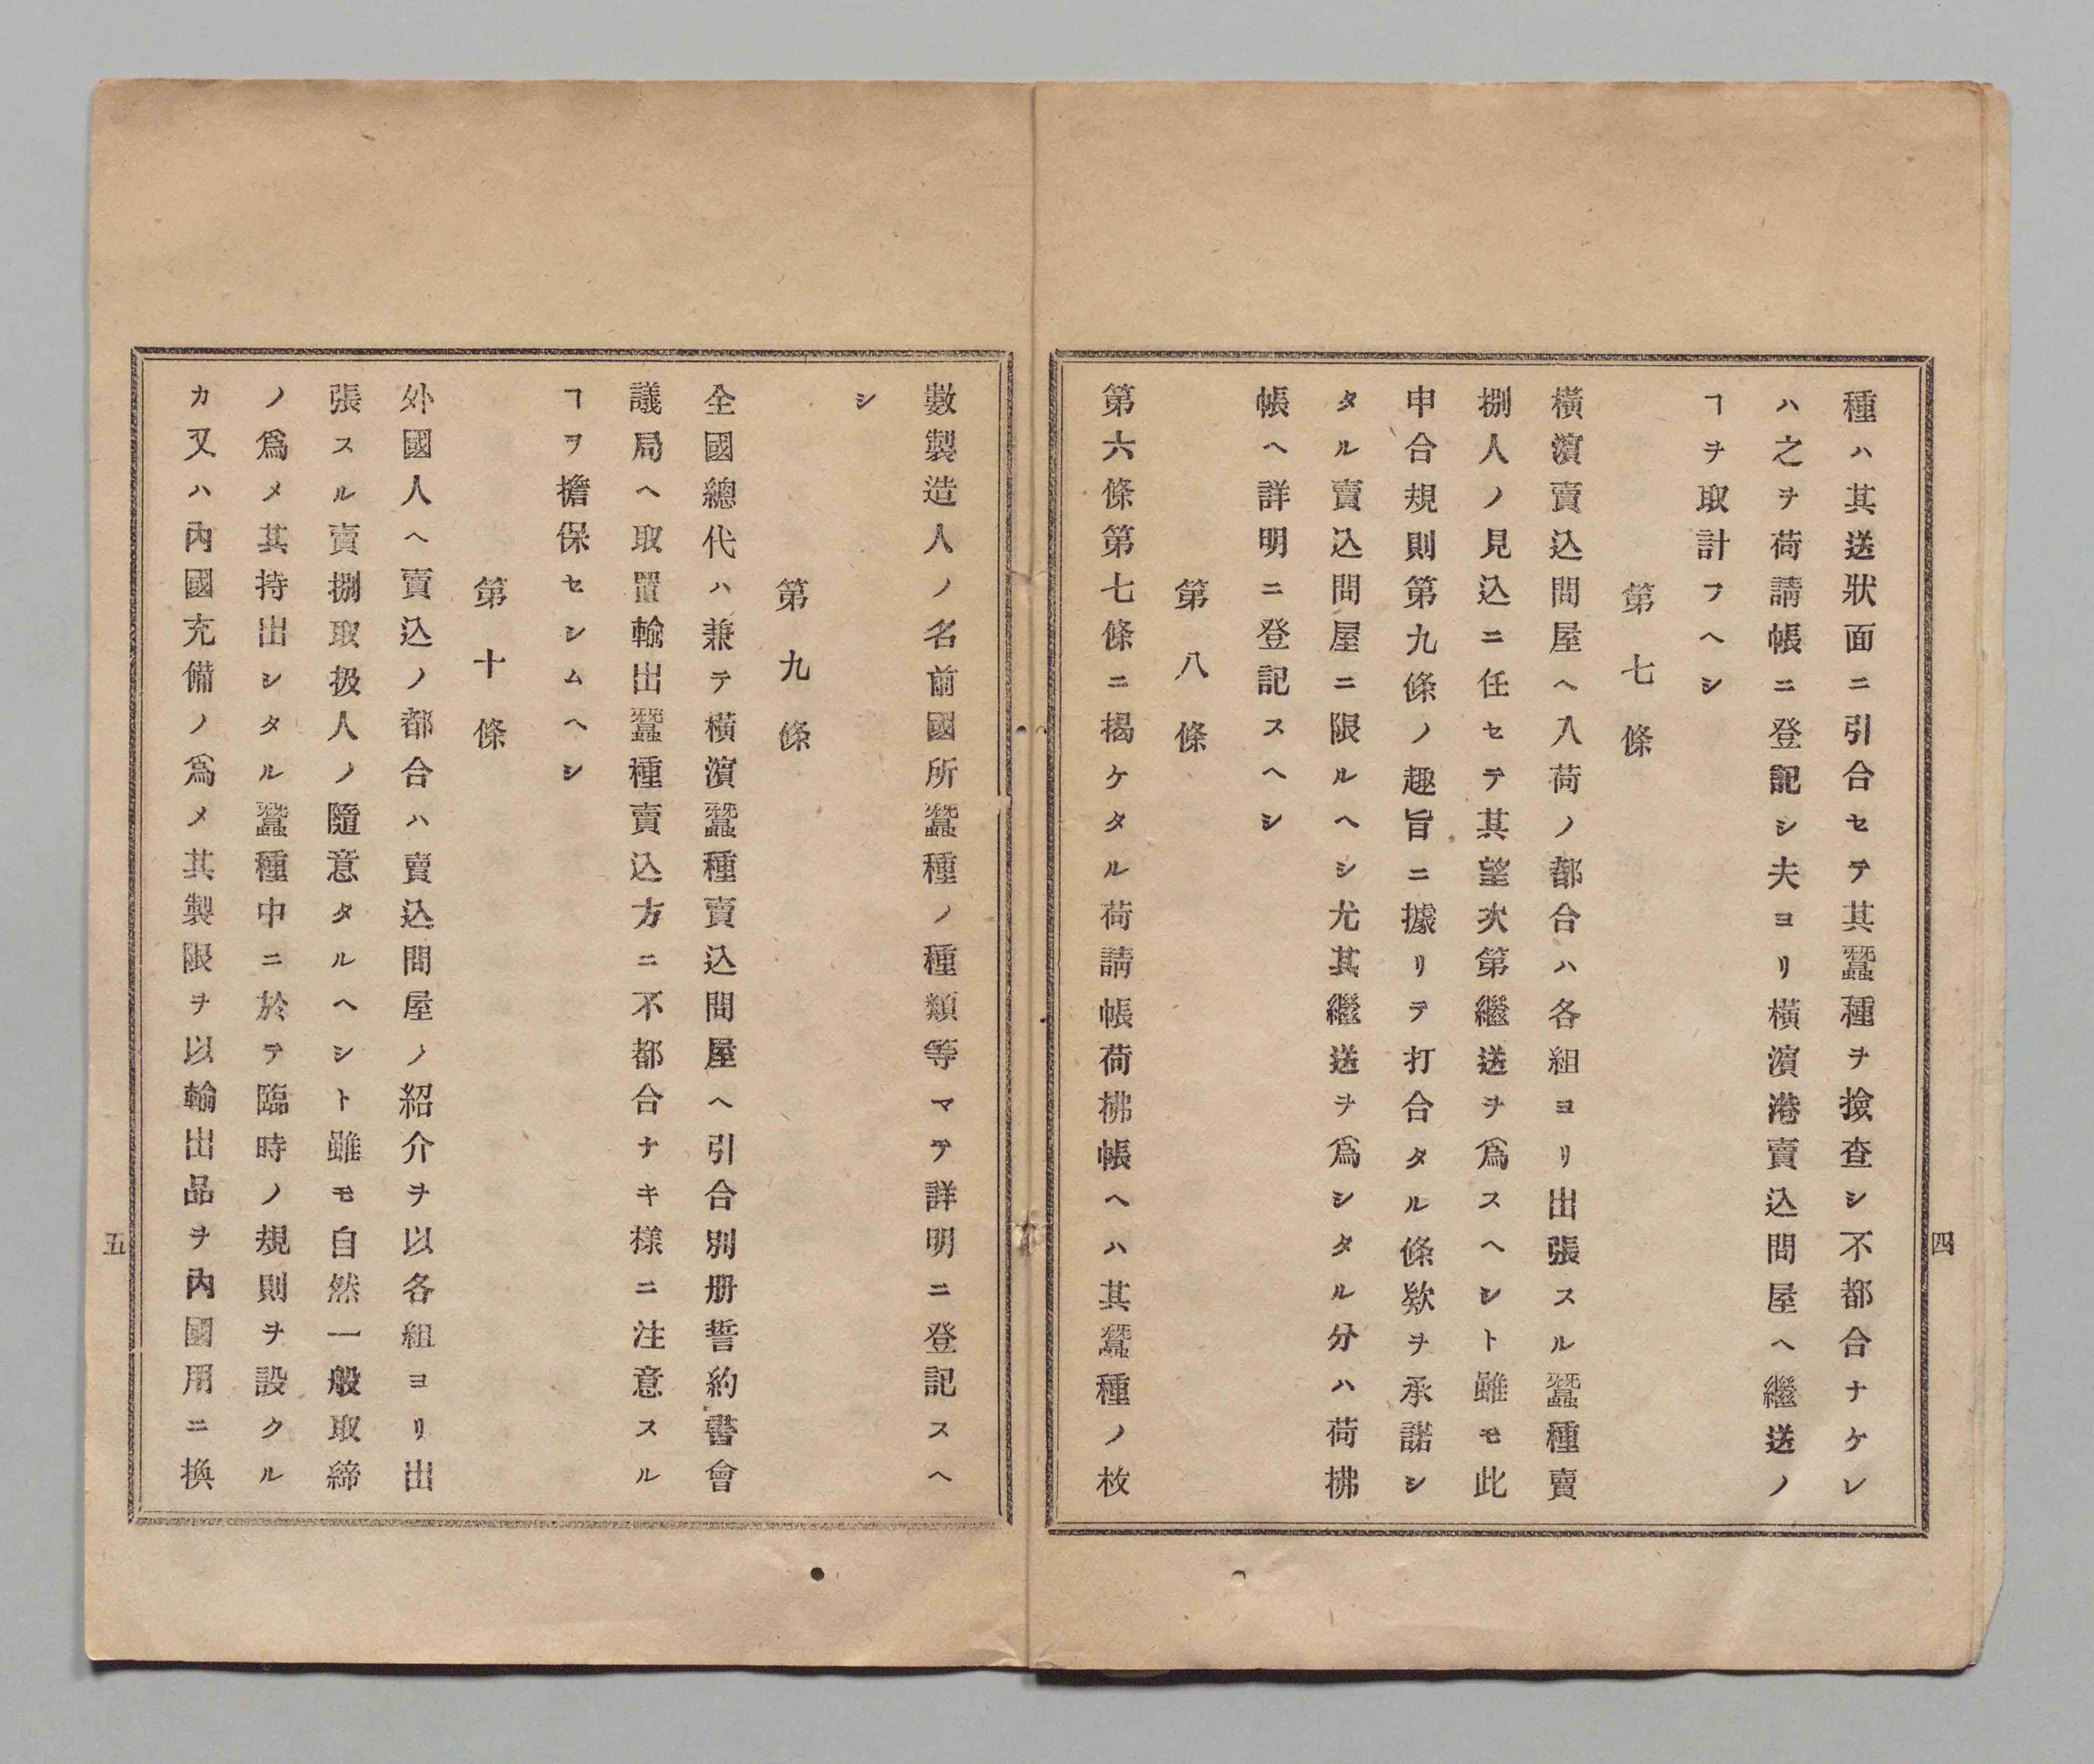 四
種ハ其送狀面ニ引合セテ其蠶種ヲ撿査シ不都合ナケレ
ハ之ヲ荷請帳ニ登記シ夫ヨリ橫濱港賣込問屋ヘ繼送ノ
ヿヲ取計フヘシ
第七條
橫濱賣込問屋ヘ入荷ノ都合ハ各組ヨリ出張スル蠶種賣
捌人ノ見込ニ任セテ其望次第繼送ヲ爲スヘシト雖モ此
申合規則第九條ノ趣旨ニ據リテ打合タル條欵ヲ承諾シ
タル賣込問屋ニ限ルヘシ尤其繼送ヲ爲シタル分ハ荷拂
帳ヘ詳明ニ登記スヘシ
第八條
第六條第七條ニ揭ケタル荷請帳荷拂帳ヘハ其蠶種ノ枚
數製造人ノ名前國所蠶種ノ種類等マテ詳明ニ登記スヘ
シ
第九條
全國總代ハ兼テ橫濱蠶種賣込問屋ヘ引合別册誓約書會
議局ヘ取置輸出蠶種賣込方ニ不都合ナキ樣ニ注意スル
ヿヲ擔保セシムヘシ
第十條
外國人ヘ賣込ノ都合ハ賣込問屋ノ紹介ヲ以各組ヨリ出
張スル賣捌取扱人ノ隨意タルヘシト雖モ自然一般取締
ノ爲メ其持出シタル蠶種中ニ於テ臨時ノ規則ヲ設クル
カ又ハ內國充備ノ爲メ其製限ヲ以輸出品ヲ內國用ニ換
五